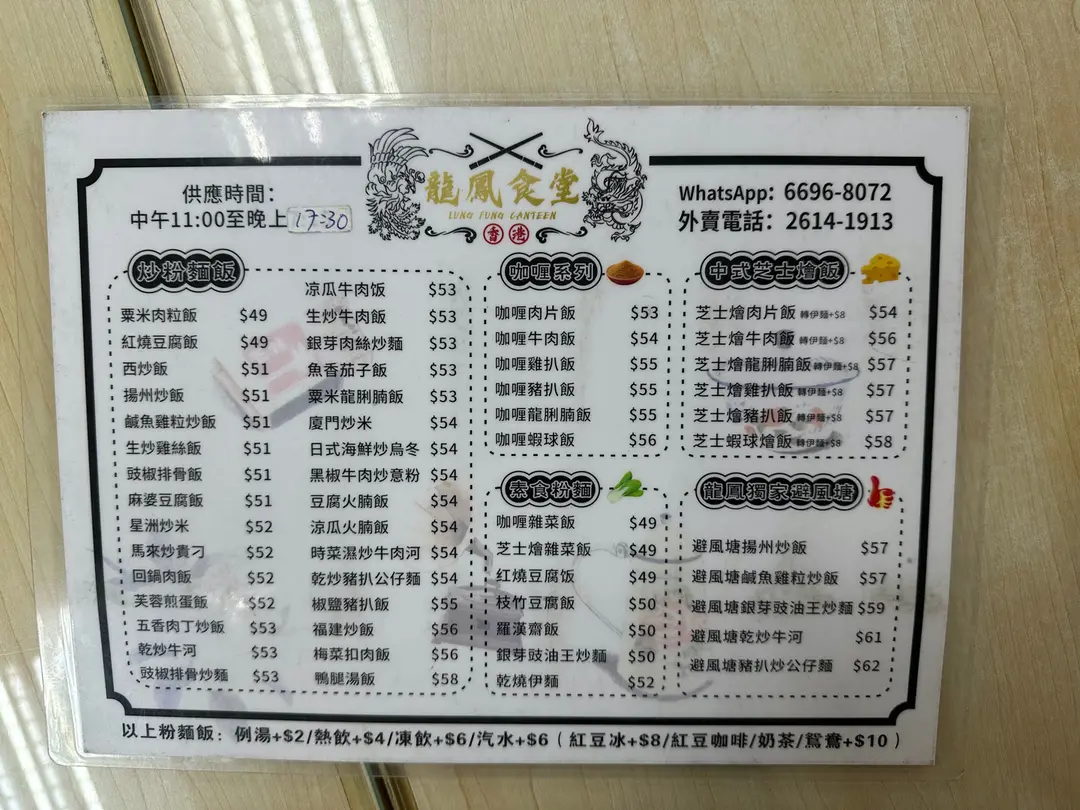 供應時間：
中午11:00至晚上17:30
龍鳳食堂
LUNG FUNG CANTEEN
香港
WhatsApp: 6696-8072
外賣電話：2614-1913
炒粉麵飯
粟米肉粒飯 $49
紅燒豆腐飯 $49
西炒飯 $51
揚州炒飯 $51
鹹魚雞粒炒飯 $51
生炒雞絲飯 $51
豉椒排骨飯 $51
麻婆豆腐飯 $51
星洲炒米 $52
馬來炒貴刁 $52
回鍋肉飯 $52
芙蓉煎蛋飯 $52
五香肉丁炒飯 $53
乾炒牛河 $53
豉椒排骨炒麵 $53
凉瓜牛肉饭 $53
生炒牛肉飯 $53
銀芽肉絲炒麵 $53
魚香茄子飯 $53
粟米龍脷腩飯 $53
廈門炒米 $54
日式海鮮炒烏冬 $54
黑椒牛肉炒意粉 $54
豆腐火腩飯 $54
涼瓜火腩飯 $54
時菜濕炒牛肉河 $54
乾炒豬扒公仔麵 $54
椒鹽豬扒飯 $55
福建炒飯 $56
梅菜扣肉飯 $56
鴨腿湯飯 $58
咖喱系列
咖喱肉片飯 $53
咖喱牛肉飯 $54
咖喱雞扒飯 $55
咖喱豬扒飯 $55
咖喱龍脷腩飯 $55
咖喱蝦球飯 $56
素食粉麵
咖喱雜菜飯 $49
芝士燴雜菜飯 $49
紅燒豆腐饭 $49
枝竹豆腐飯 $50
羅漢齋飯 $50
銀芽豉油王炒麵 $50
乾燒伊麵 $52
中式芝士燴飯
芝士燴肉片飯 轉伊麵+$8 $54
芝士燴牛肉飯 轉伊麵+$8 $56
芝士燴龍脷腩飯 轉伊麵+$8 $57
芝士燴雞扒飯 轉伊麵+$8 $57
芝士燴豬扒飯 轉伊麵+$8 $57
芝士蝦球燴飯 轉伊麵+$8 $58
龍鳳獨家避風塘
避風塘揚州炒飯 $57
避風塘鹹魚雞粒炒飯 $57
避風塘銀芽豉油王炒麵 $59
避風塘乾炒牛河 $61
避風塘豬扒炒公仔麵 $62
以上粉麵飯：例湯+$2/熱飲+$4/凍飲+$6/汽水+$6（紅豆冰+$8/紅豆咖啡/奶茶/鴛鴦+$10）